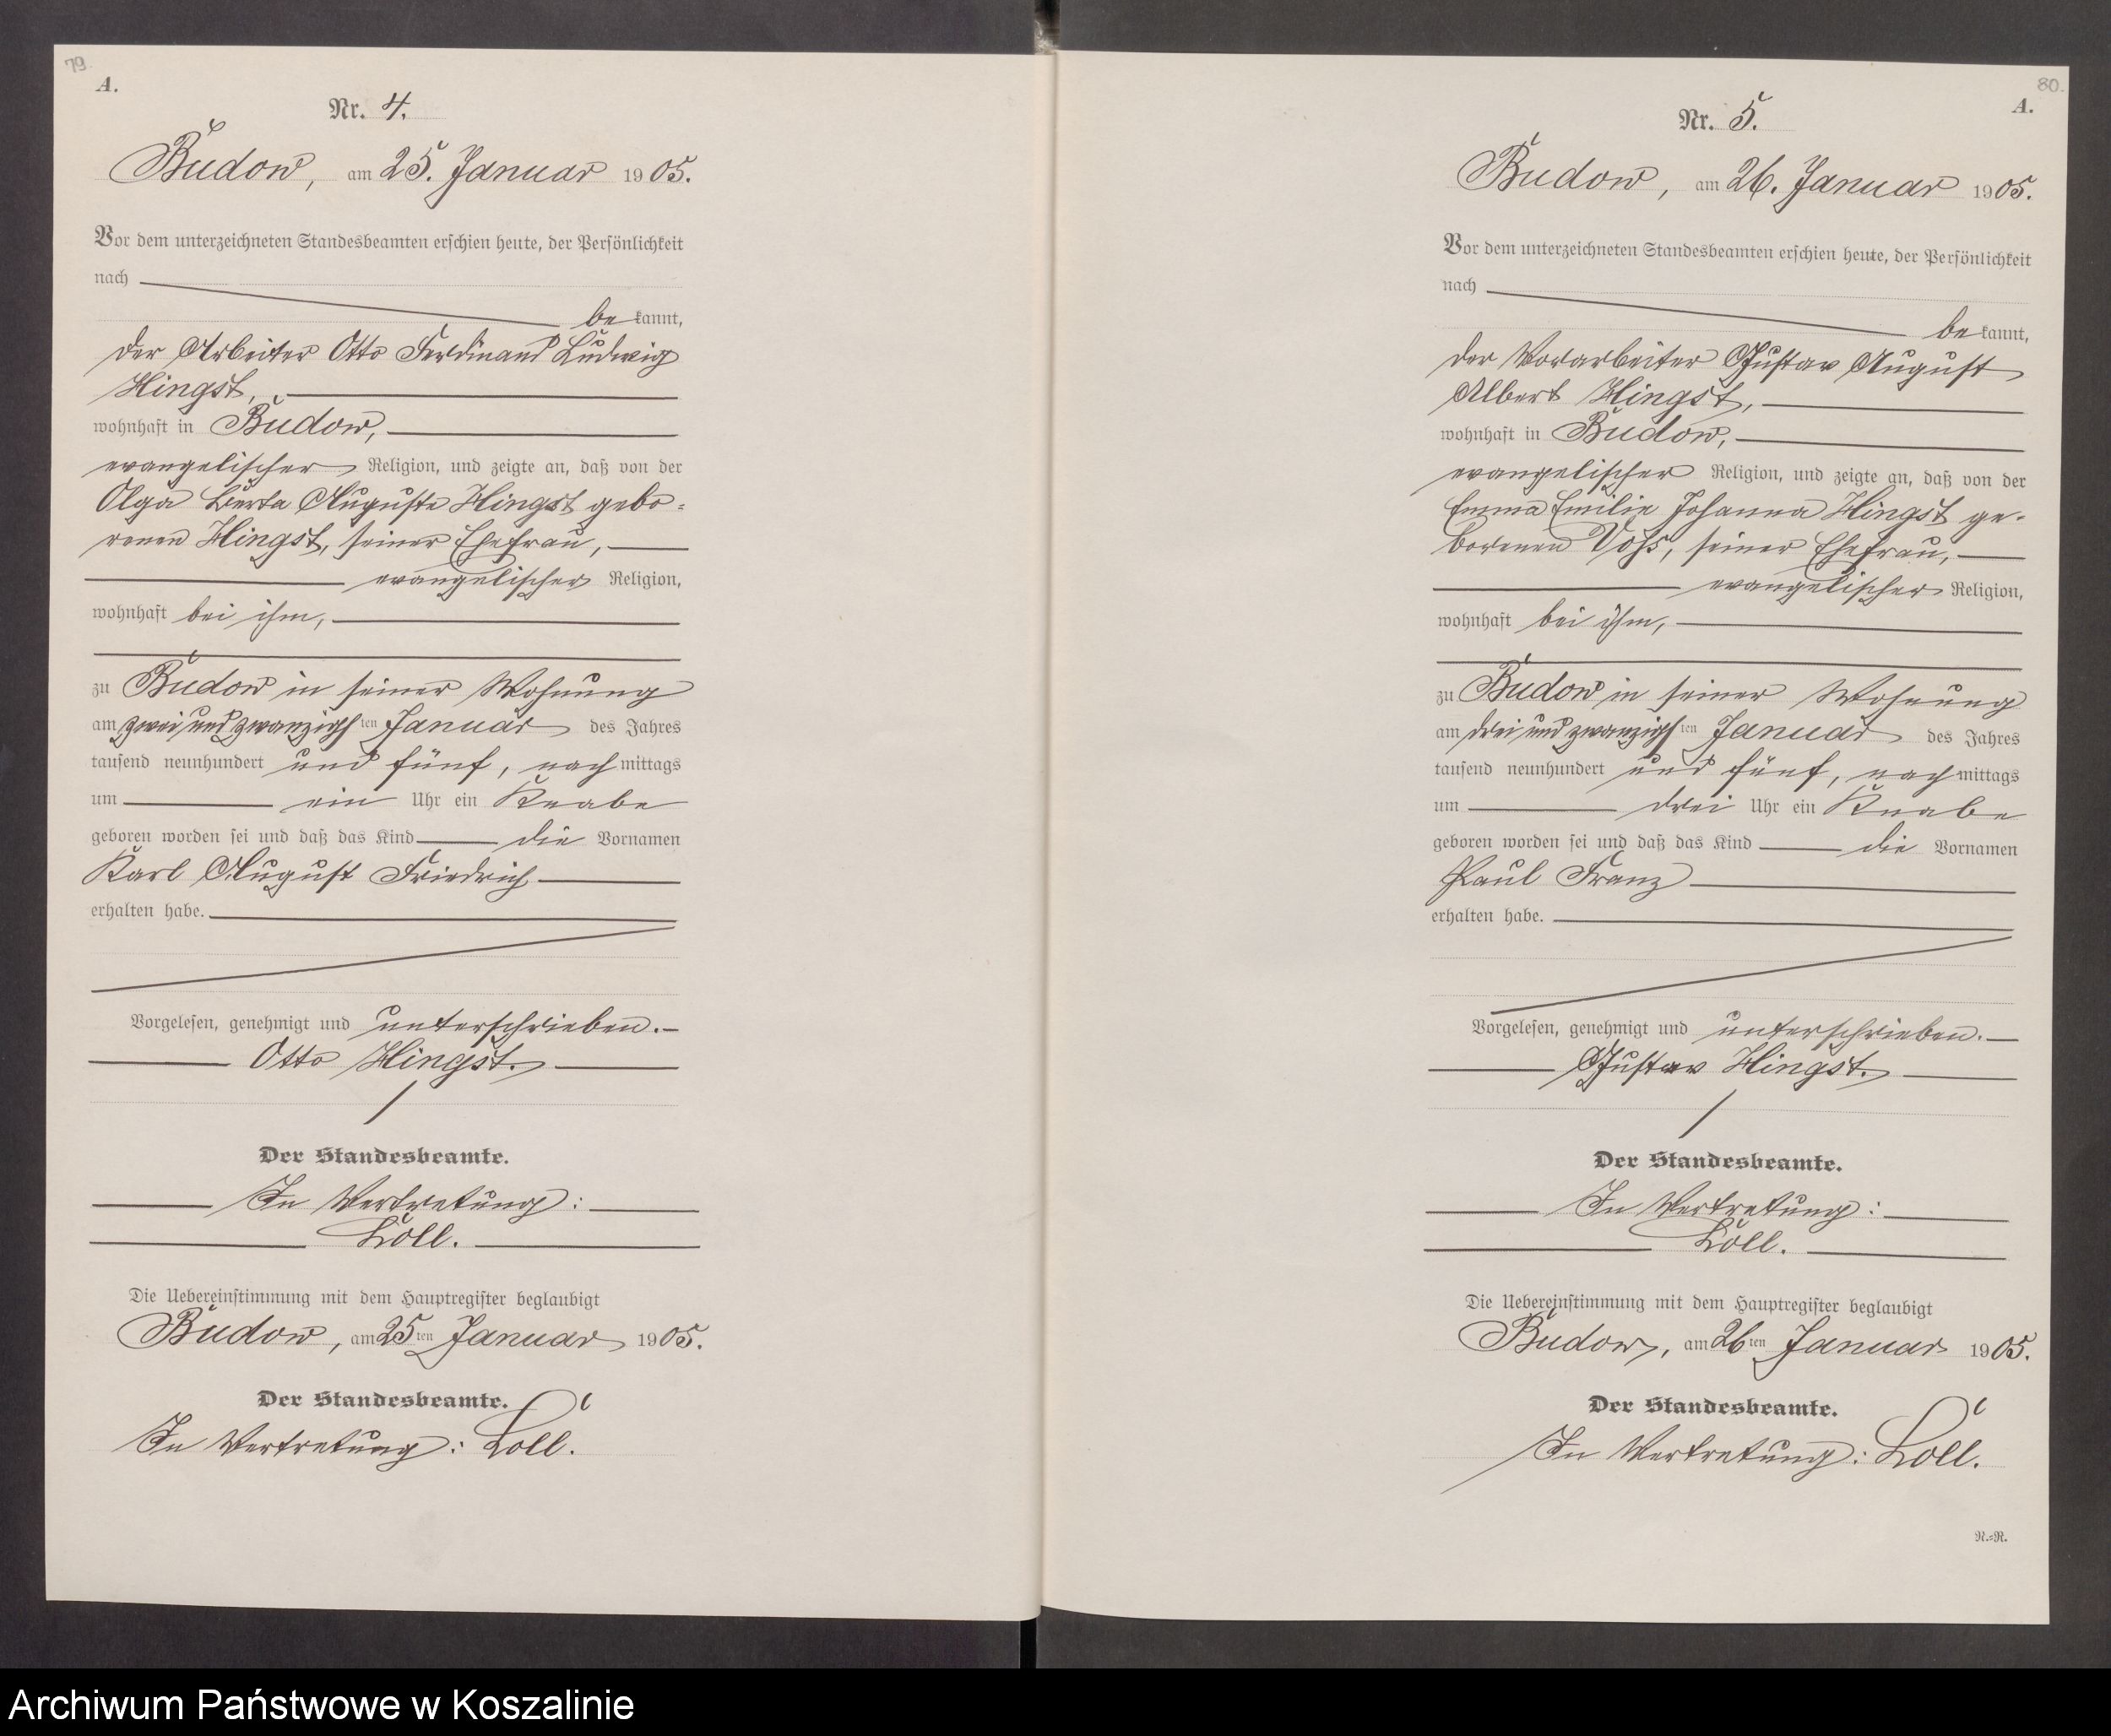 79.
A.
Nr. 4.
Budow, am 25. Januar 1905.
Vor dem unterzeichneten Standesbeamten erschien heute, der Persönlichkeit
nach
bekannt,
der Arbeiter Otto Ferdinand Ludwig
Hingst,
wohnhaft in Budow,
evangelischer Religion, und zeigte an, daß von der
Olga Berta Auguste Hingst gebo-
renen Hingst, seiner Ehefrau,
evangelischer Religion,
wohnhaft bei ihm,
zu Budow in seiner Wohnung
am zwei und zwanzigsten Januar des Jahres
tausend neunhundert und fünf, nachmittags
um ein Uhr ein Knabe
geboren worden sei und daß das Kind die Vornamen
Karl August Friedrich
erhalten habe.
Vorgelesen, genehmigt und unterschrieben.
Otto Hingst.
Der Standesbeamte.
In Vertretung:
Loll.
Die Uebereinstimmung mit dem Hauptregister beglaubigt
Budow, am 25ten Januar 1905.
Der Standesbeamte.
In Vertretung: Loll.
80.
A.
Nr. 5.
Budow, am 26. Januar 1905.
Vor dem unterzeichneten Standesbeamten erschien heute, der Persönlichkeit
nach
bekannt,
der Vorarbeiter Gustav August
Albert Hingst,
wohnhaft in Budow,
evangelischer Religion, und zeigte an, daß von der
Emma Emilie Johanna Hingst ge-
borenen Voß, seiner Ehefrau,
evangelischer Religion,
wohnhaft bei ihm,
zu Budow in seiner Wohnung
am drei und zwanzigsten Januar des Jahres
tausend neunhundert und fünf, nachmittags
um drei Uhr ein Knabe
geboren worden sei und daß das Kind die Vornamen
Paul Franz
erhalten habe.
Vorgelesen, genehmigt und unterschrieben.
Gustav Hingst.
Der Standesbeamte.
In Vertretung:
Loll.
Die Uebereinstimmung mit dem Hauptregister beglaubigt
Budow, am 26ten Januar 1905.
Der Standesbeamte.
In Vertretung: Loll.
N.=R.
Archiwum Państwowe w Koszalinie